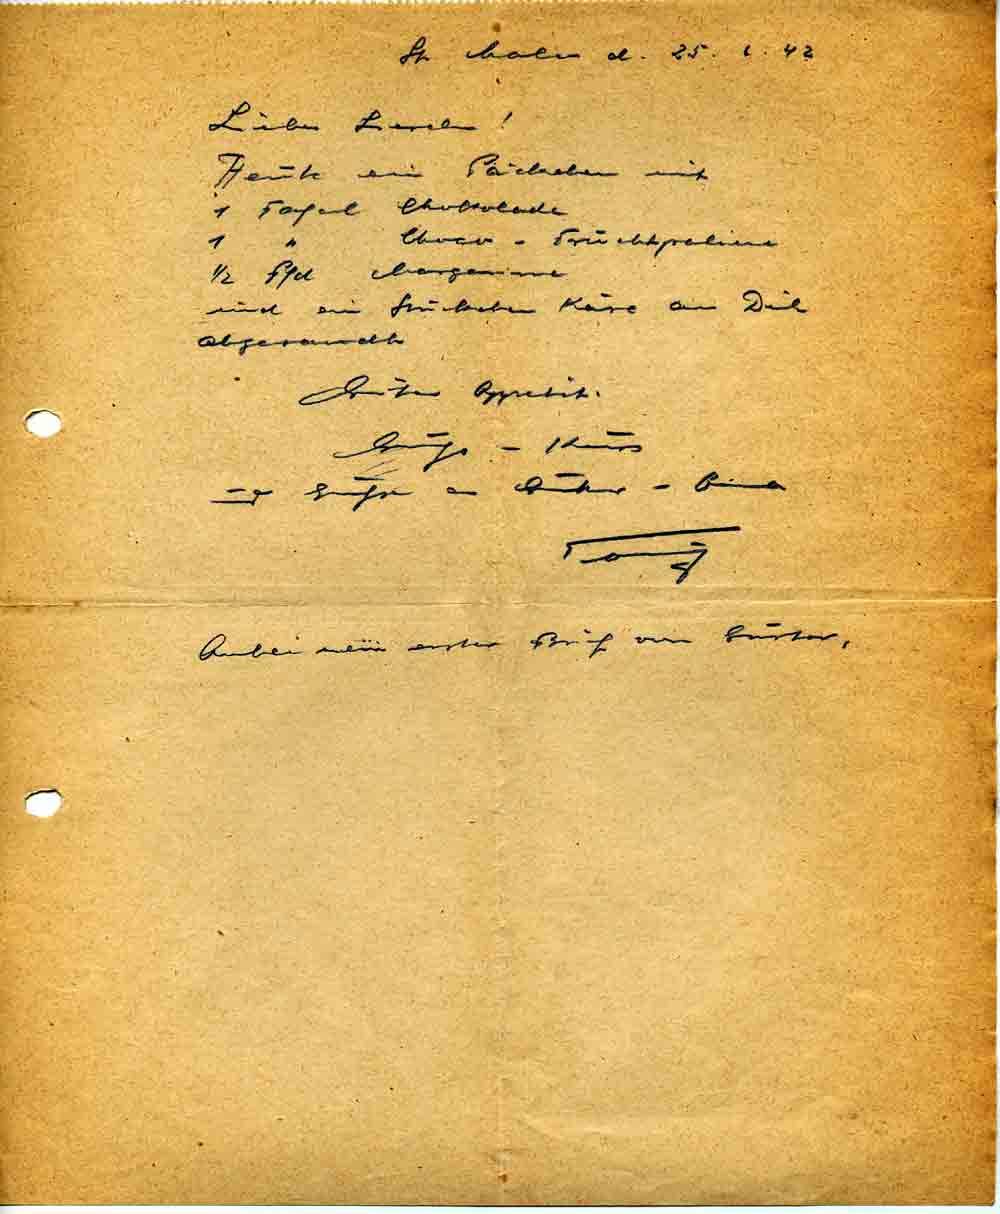 St. Malo d. 25. 6. 42
Liebes Lieschen!
Heute ein Päckchen mit
1 Tafel Chokolade
1 " Choco - Fruchtpraline
1/2 Pfd Margarine
und ein Stückchen Käse an Dich
abgesandt
Guten Appetit.
Gruß - Kuss
und Grüße an -
Anbei mein erster Brief von